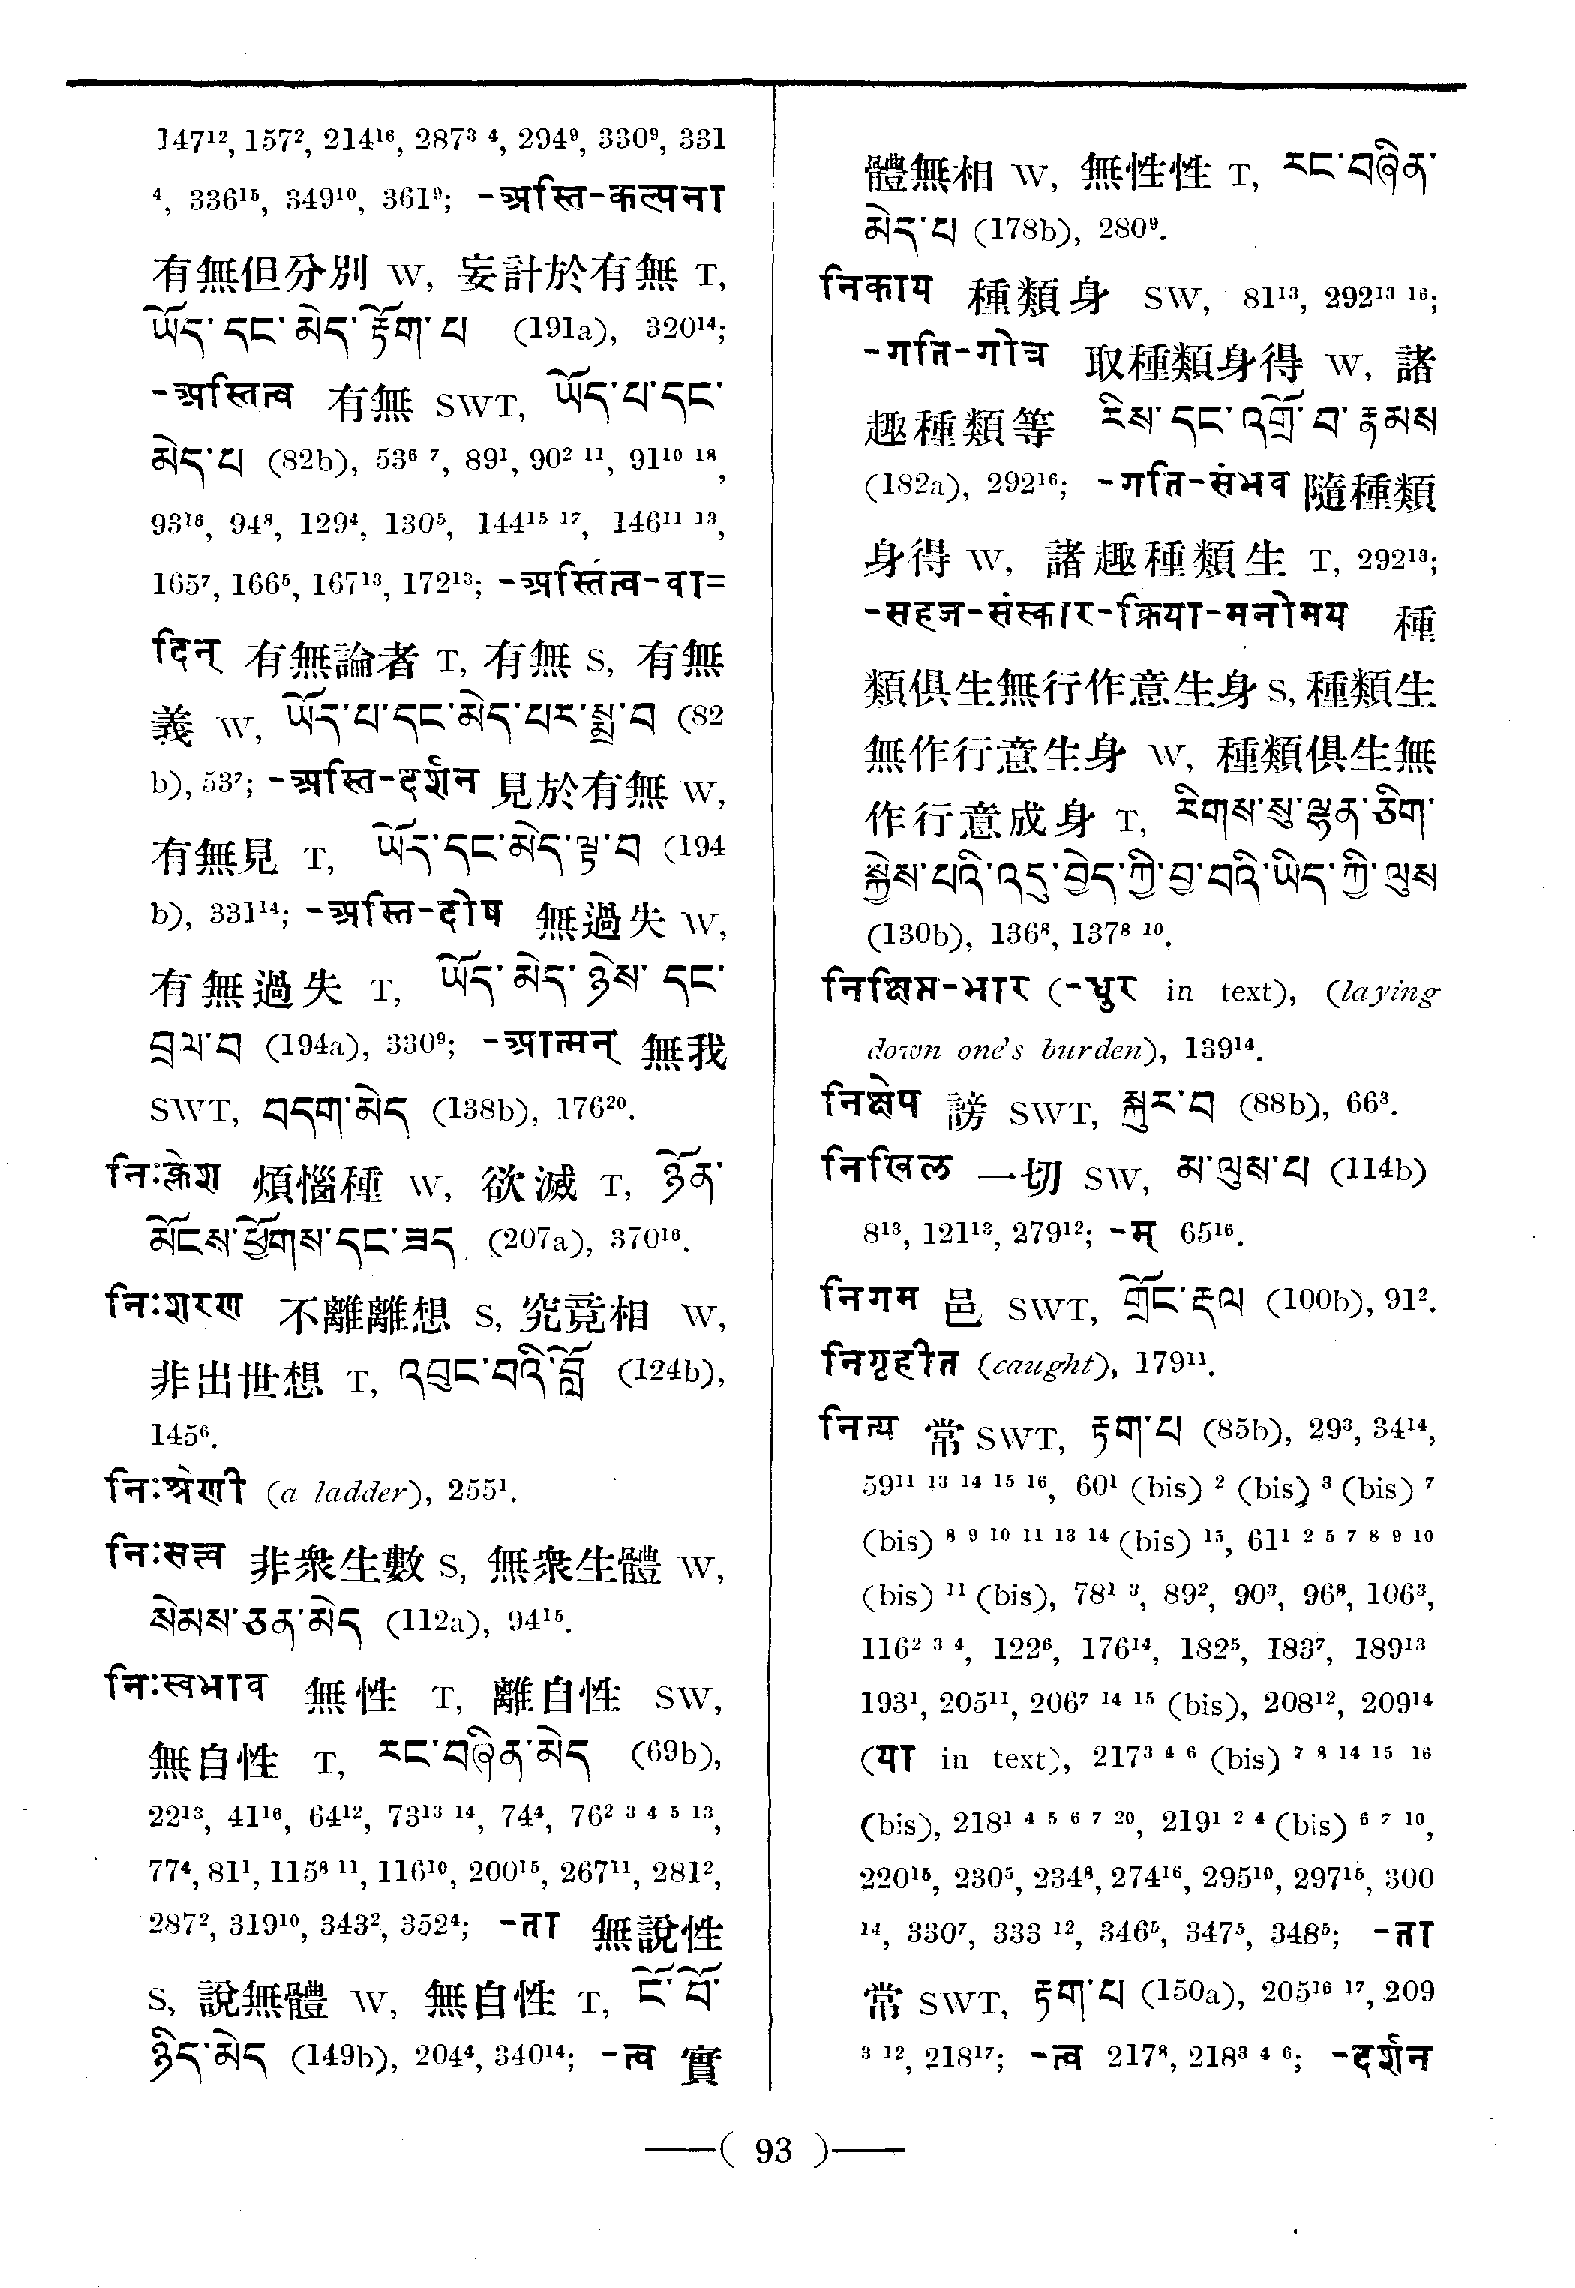 147¹², 157², 214¹⁶, 287³ ⁴, 294⁹, 330⁹, 331
⁴, 336¹⁵, 349¹⁰, 361⁹; -अस्ति-कल्पना
有無但分別 W, 妄計於有無 T,
ཡོད་དང་མེད་རྟོག་པ (191a), 320¹⁴;
-अस्तित्व 有無 SWT, ཡོད་པ་དང་
མེད་པ (82b), 53⁶ ⁷, 89¹, 90² ¹¹, 91¹⁰ ¹⁸,
93¹⁸, 94⁸, 129⁴, 130⁵, 144¹⁵ ¹⁷, 146¹¹ ¹³,
165⁷, 166⁵, 167¹³, 172¹³; -अस्तित्व-वा=
दिन् 有無論者 T, 有無 S, 有無
義 W, ཡོད་པ་དང་མེད་པར་སྨྲ་བ (82
b), 53⁷; -अस्ति-दर्शन 見於有無 W,
有無見 T, ཡོད་དང་མེད་ལྟ་བ (194
b), 331¹⁴; -अस्ति-दोष 無過失 W,
有無過失 T, ཡོད་མེད་ཉེས་དང་
བྲལ་བ (194a), 330⁹; -आत्मन् 無我
SWT, བདག་མེད (138b), 176²⁰.
निःक्लेश 煩惱種 W, 欲滅 T, ཉོན་
མོངས་ཕྱོགས་དང་ཟད (207a), 370¹⁶.
निःशरण 不離離想 S, 究竟相 W,
非出世想 T, འབྱུང་བའི་བློ (124b),
145⁶.
निःश्रेणी (a ladder), 255¹.
निःसत्त्व 非衆生數 S, 無衆生體 W,
སེམས་ཅན་མེད (112a), 94¹⁵.
निःस्वभाव 無性 T, 離自性 SW,
無自性 T, རང་བཞིན་མེད (69b),
22¹³, 41¹⁶, 64¹², 73¹³ ¹⁴, 74⁴, 76² ³ ⁴ ⁵ ¹³,
77⁴, 81¹, 115⁸ ¹¹, 116¹⁰, 200¹⁵, 267¹¹, 281²,
287², 319¹⁰, 343², 352⁴; -ता 無說性
S, 說無體 W, 無自性 T, ངོ་བོ་
ཉིད་མེད (149b), 204⁴, 340¹⁴; -त्व 實
體無相 W, 無性性 T, རང་བཞིན་
མེད་པ (178b), 280⁹.
निकाय 種類身 SW, 81¹³, 292¹³ ¹⁶;
-गति-गोत्र 取種類身得 W, 諸
趣種類等 རིས་དང་འགྲོ་བ་རྣམས
(182a), 292¹⁶; -गति-संभव 隨種類
身得 W, 諸趣種類生 T, 292¹³;
-सहज-संस्कार-क्रिया-मनोमय 種
類俱生無行作意生身 S, 種類生
無作行意生身 W, 種類俱生無
作行意成身 T, རིགས་སུ་ལྷན་ཅིག་
སྐྱེས་པའི་འདུ་བྱེད་ཀྱི་བྱ་བའི་ཡིད་ཀྱི་ལུས
(130b), 136⁸, 137⁸ ¹⁰.
निक्षिप्त-भार (-धुर in text), (laying
down one's burden), 139¹⁴.
निक्षेप 謗 SWT, སྐུར་བ (88b), 66³.
निखिल 一切 SW, མ་ལུས་པ (114b)
8¹³, 121¹³, 279¹²; -म् 65¹⁶.
निगम 邑 SWT, གྲོང་རྡལ (100b), 91².
निगृहीत (caught), 179¹¹.
नित्य 常 SWT, རྟག་པ (85b), 29³, 34¹⁴,
59¹¹ ¹³ ¹⁴ ¹⁵ ¹⁶, 60¹ (bis) ² (bis) ³ (bis) ⁷
(bis) ⁸ ⁹ ¹⁰ ¹¹ ¹³ ¹⁴ (bis) ¹⁵, 61¹ ² ⁵ ⁷ ⁸ ⁹ ¹⁰
(bis) ¹¹ (bis), 78¹ ³, 89², 90³, 96⁸, 106³,
116² ³ ⁴, 122⁶, 176¹⁴, 182⁵, 183⁷, 189¹³
193¹, 205¹¹, 206⁷ ¹⁴ ¹⁵ (bis), 208¹², 209¹⁴
(या in text), 217³ ⁴ ⁶ (bis) ⁷ ⁸ ¹⁴ ¹⁵ ¹⁶
(bis), 218¹ ⁴ ⁵ ⁶ ⁷ ²⁰, 219¹ ² ⁴ (bis) ⁶ ⁷ ¹⁰,
220¹⁵, 230⁵, 234⁸, 274¹⁶, 295¹⁰, 297¹⁵, 300
¹⁴, 330⁷, 333 ¹², 346⁵, 347⁵, 348⁵; -ता
常 SWT, རྟག་པ (150a), 205¹⁶ ¹⁷, 209
³ ¹², 218¹⁷; -त्व 217⁸, 218³ ⁴ ⁶; -दर्शन
—( 93 )—